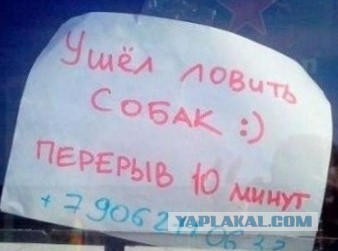 Ушёл ловить
СОБАК :)
ПЕРЕРЫВ 10 минут
YAPLAKAL.COM